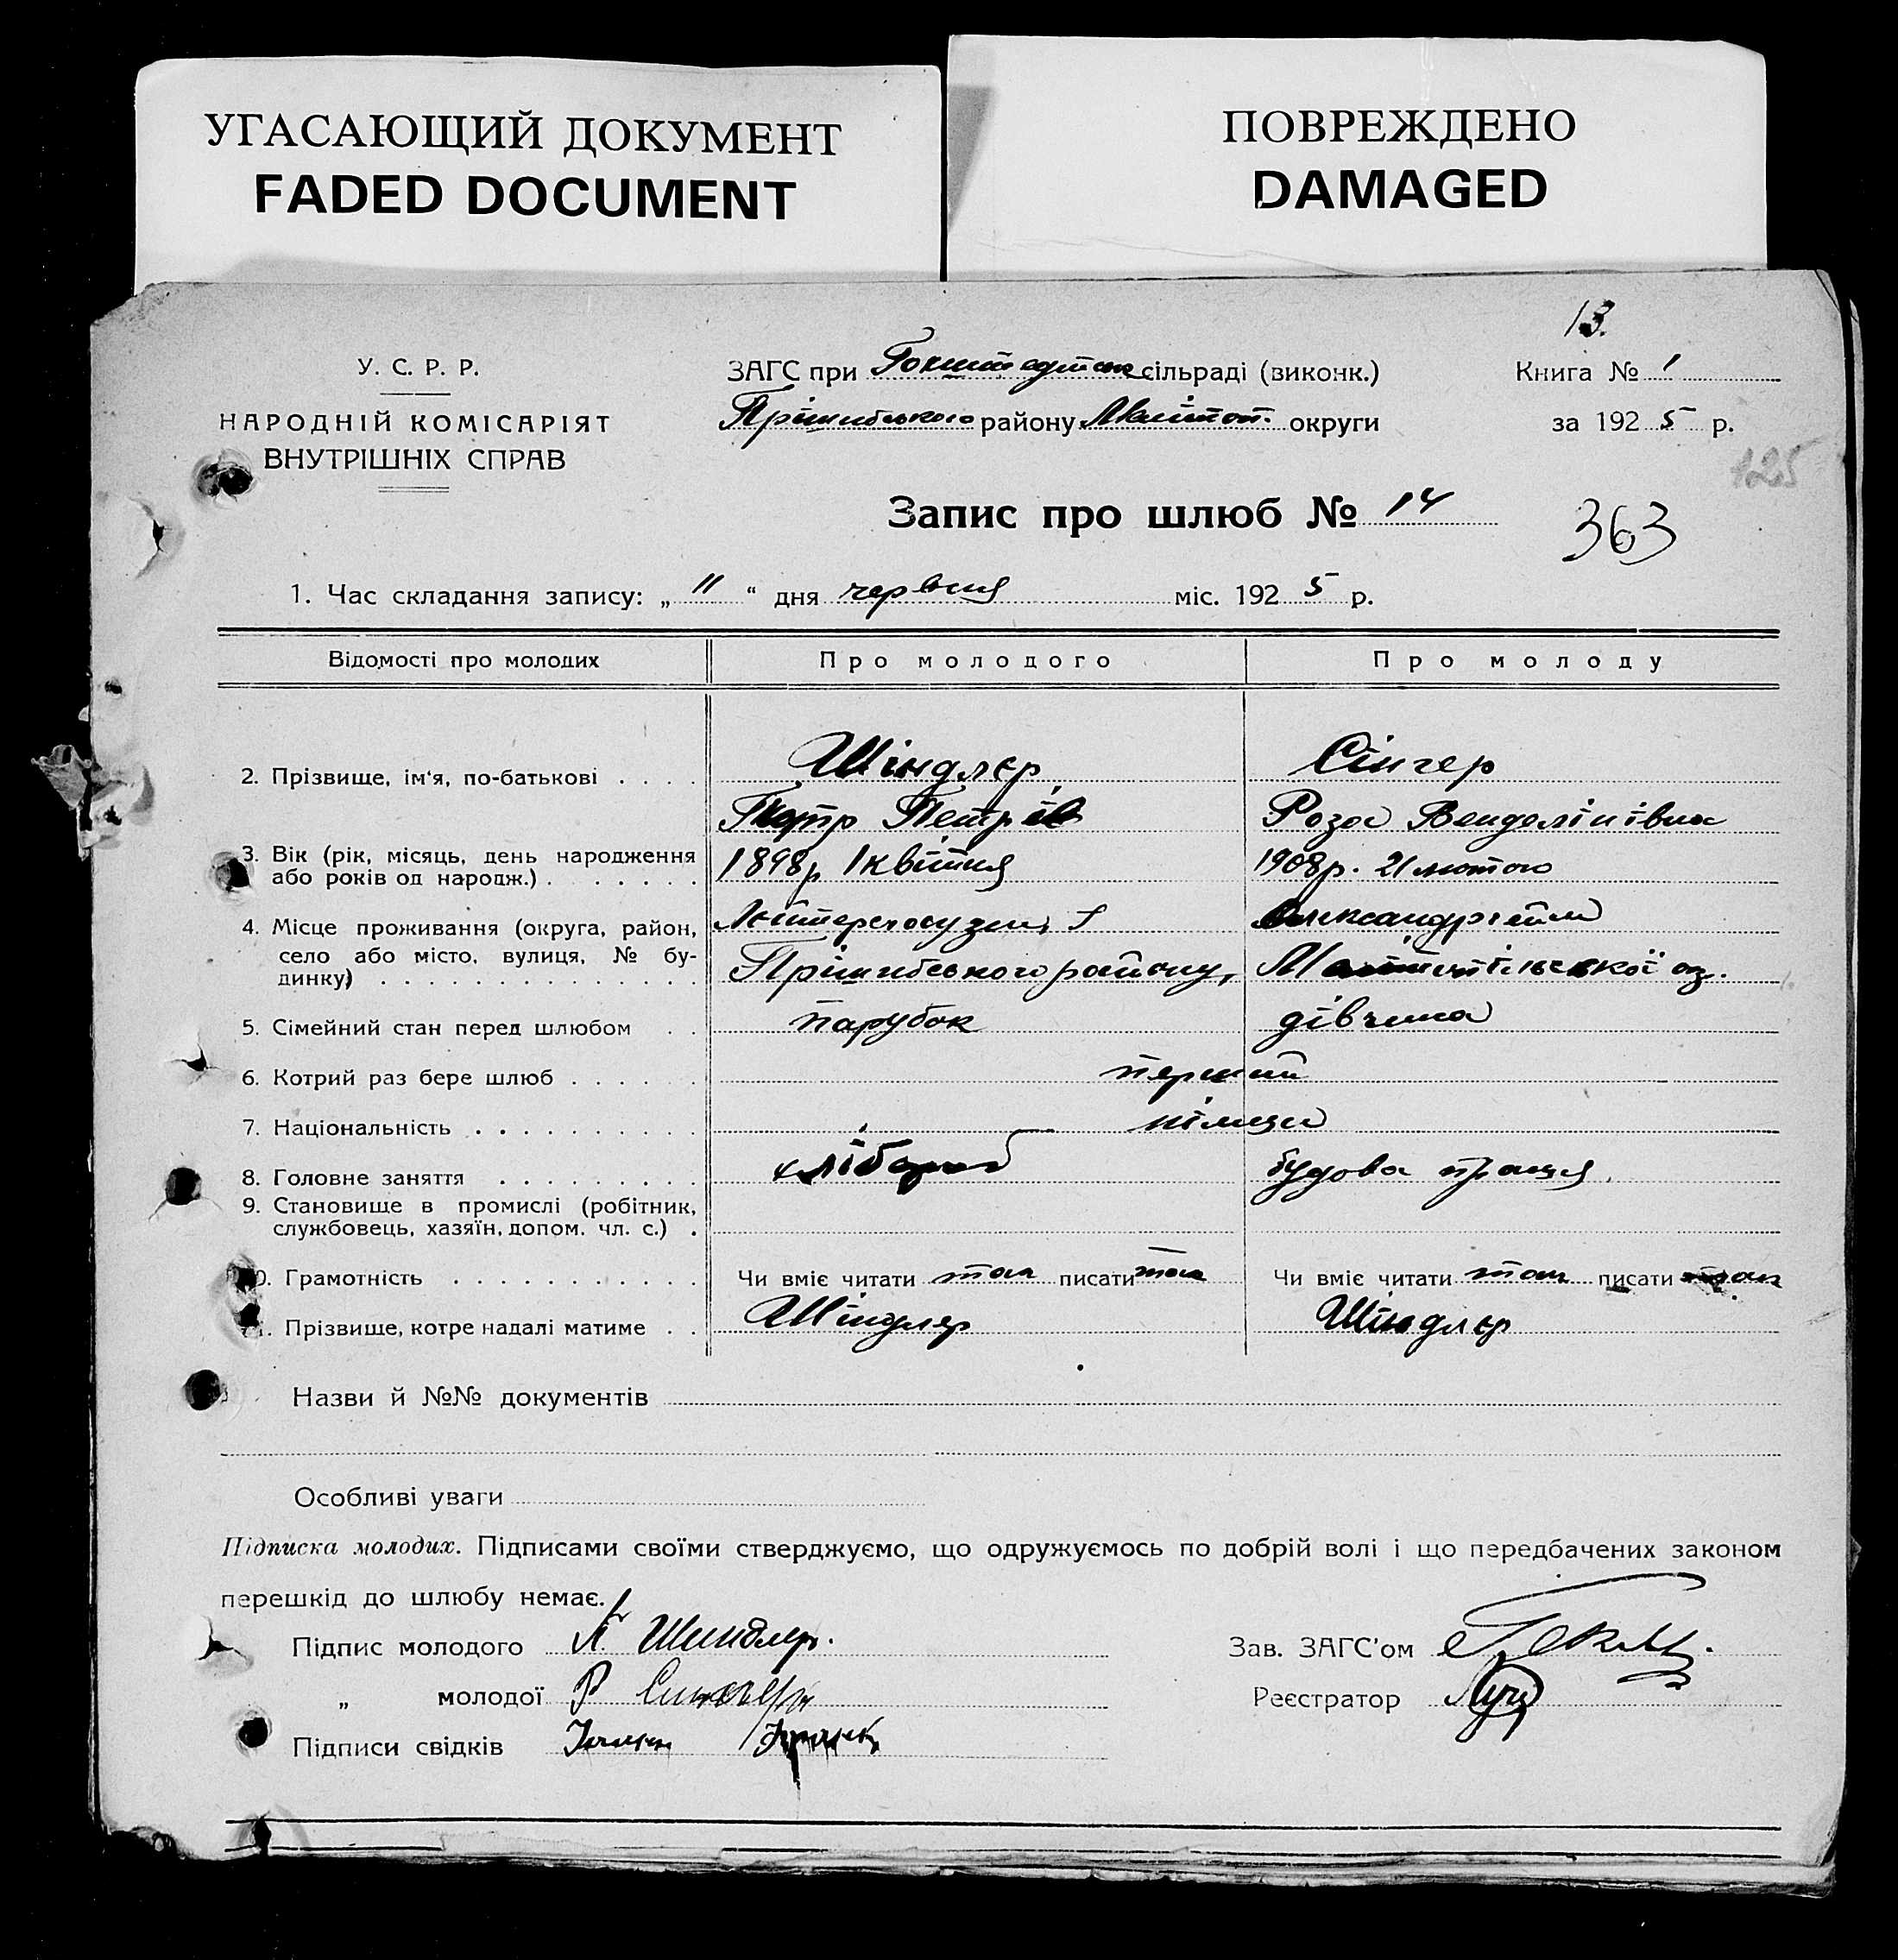 УГАСАЮЩИЙ ДОКУМЕНТ
FADED DOCUMENT
ПОВРЕЖДЕНО
DAMAGED
13.
У. С. Р. Р.
НАРОДНІЙ КОМІСАРІЯТ
ВНУТРІШНІХ СПРАВ
ЗАГС при сільраді (виконк.)
Прішибського району Мелітоп. округи
Книга № 1
за 1925 р.
125
Запис про шлюб № 14
363
1. Час складання запису: „ 11 “ дня червня міс. 1925 р.
Відомості про молодих Про молодого Про молоду
2. Прізвище, ім‘я, по-батькові . . . . Шіндлєр Сінгер
Петр Петрів Роза Венделінівна
3. Вік (рік, місяць, день народження або років од народж.) . . . . . . 1898р 1 квітня 1908р. 21 лютого
4. Місце проживання (округа, район, село або місто, вулиця, № будинку) . . . . . . Олександргейм
Прішибського району,
5. Сімейний стан перед шлюбом . . парубок дівчина
6. Котрий раз бере шлюб . . . . . . перший
7. Національність . . . . . . . . . . німці
8. Головне заняття . . . . . . . . . хлібороб будова праця
9. Становище в промислі (робітник, службовець, хазяїн, допом. чл. с.) .
0. Грамотність . . . . . . . . . . . Чи вміє читати так писати так Чи вміє читати так писати так
1. Прізвище, котре надалі матиме . . Шіндлер Шіндлєр
Назви й №№ документів
Особливі уваги
Підписка молодих. Підписами своїми стверджуємо, що одружуємось по добрій волі і що передбачених законом
перешкід до шлюбу немає.
Підпис молодого Шиндлер.
Зав. ЗАГС'ом
„ молодої Р Сингер
Реєстратор
Підписи свідків Франк